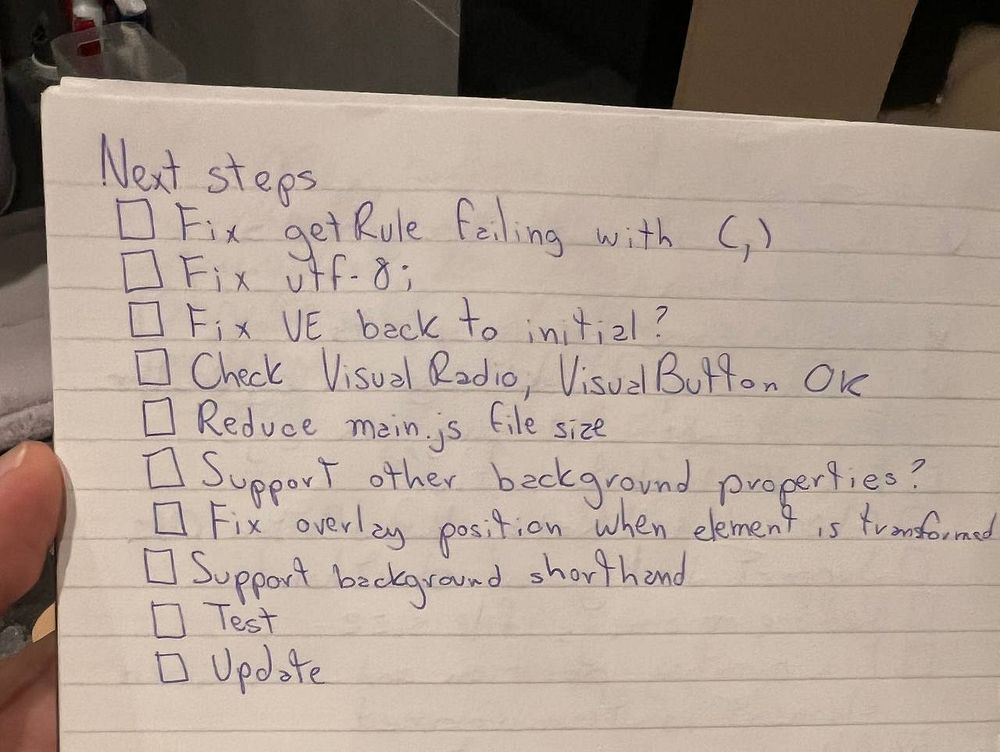 Next steps
☐ Fix getRule failing with (,)
☐ Fix utf-8;
☐ Fix VE back to initial?
☐ Check Visual Radio, VisualButton OK
☐ Reduce main.js file size
☐ Support other background properties?
☐ Fix overlay position when element is transformed
☐ Support background shorthand
☐ Test
☐ Update